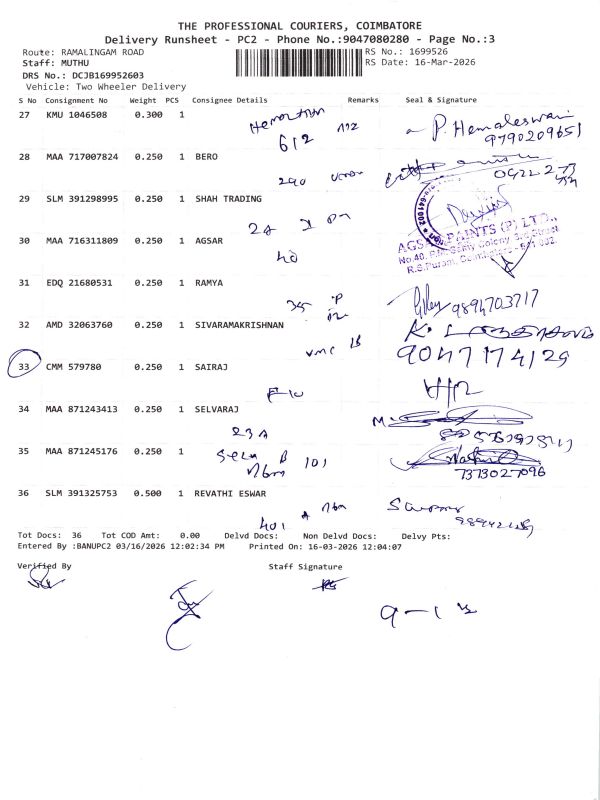 THE PROFESSIONAL COURIERS, COIMBATORE
Delivery Runsheet - PC2 - Phone No.:9047080280 - Page No.:3
Route: RAMALINGAM ROAD RS No.: 1699526
Staff: MUTHU RS Date: 16-Mar-2026
DRS No.: DCJB169952603
Vehicle: Two Wheeler Delivery
S No Consignment No Weight PCS Consignee Details Remarks Seal & Signature
27 KMU 1046508 0.300 1
P. Hemaleswari
612
9790209651
28 MAA 717007824 0.250 1 BERO
290
0422 273
29 SLM 391298995 0.250 1 SHAH TRADING
2A
30 MAA 716311809 0.250 1 AGSAR
40
AGSAR PAINTS (P) LTD.,
R.S.Puram, Coimbatore - 641 002.
31 EDQ 21680531 0.250 1 RAMYA
35 P
9894703717
32 AMD 32063760 0.250 1 SIVARAMAKRISHNAN
VMC B
9047174129
33 CMM 579780 0.250 1 SAIRAJ
34 MAA 871243413 0.250 1 SELVARAJ
23A
35 MAA 871245176 0.250 1
B 101
7373027096
36 SLM 391325753 0.500 1 REVATHI ESWAR
401 A
Tot Docs: 36 Tot COD Amt: 0.00 Delvd Docs: Non Delvd Docs: Delvy Pts:
Entered By :BANUPC2 03/16/2026 12:02:34 PM Printed On: 16-03-2026 12:04:07
Verified By Staff Signature